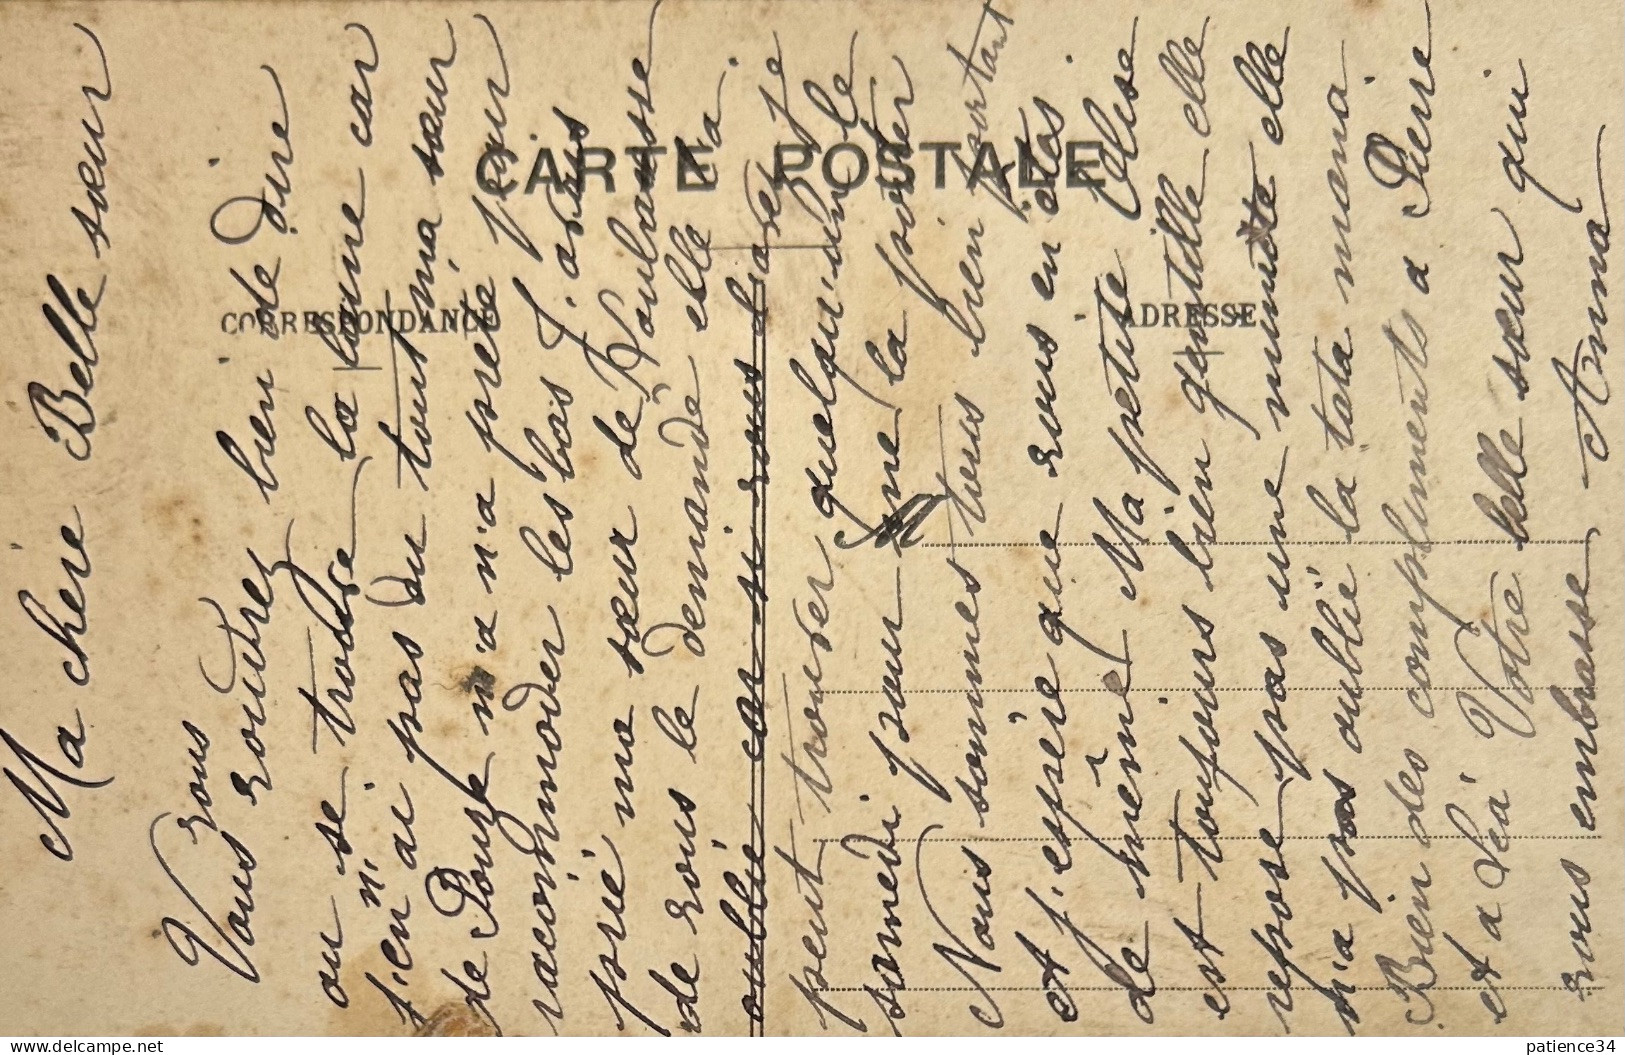 Ma chère Belle sœur
vous
Vous voudrez bien de dire
ou se trouve la laine car
j'en n'ai pas du tout ma sœur
de Pouzk n'a n'a prété pour
racommoder les bas J'avais
prié ma sœur de Roulausse
de vous le demandé elle l'a
oublié car si vous
peut trouver quelqu'un le
samedi pour me la porter
Nous sommes tous bien portant
et j'espére que vous en étes
de même Ma petite Elise
est toujours bien gentille elle
repose pas une minute elle
n'a pas oublié la tata mama
Bien des compliments a Pierre
et a Léa Votre belle sœur qui
vous embrasse Anna
CARTE POSTALE
CORRESPONDANCE
ADRESSE
M
www.delcampe.net
patience34